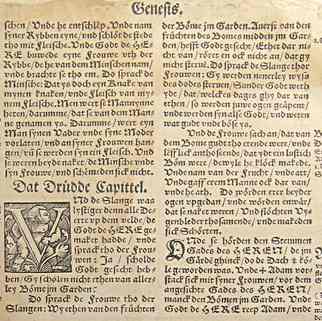 Genesis.
schen / Vnde he entschlep. Vnde nam
syner Rybben eyne / vnd schlöt de stede
tho mit Fleische. Vnde Godt de HE-
RE buwede eyne Frouwe vth der
Rybbe / de he van dem Minschen nam /
vnde brachte se tho em. Do sprack de
Minsche: Dat ys doch eyn Knake van
mynen Knaken / vnde Fleisch van my-
nem Fleische. Men wert se Mannynne
heten / darumme / dat se van dem Man-
ne genamen ys. Darumme / wert eyn
Man synen Vader vnde syne Moder
vorlaten / vnd an syner Frouwen han-
gen / vnd se werden syn ein Fleisch. Vnd
se weren beyde naket / de Minsche vnde
syn Frouwe / vnd schemeden sick nicht.
Dat Drüdde Capittel.
VNd de Slange was
lystiger denn alle Dee-
rte vp dem velde / de
Godt de HERE ge-
maket hadde / vnde
sprack tho der Frou-
wen: Ja / scholde
Godt gesecht heb-
ben / Gy scholen nicht ethen van aller-
ley Böme jm Garden?
Do sprack de Frouwe tho der
Slangen: Wy ethen van den früchten
der Böme jm Garden. Auerst van den
früchten des Bomes midden jm Gar-
den / hefft Godt gesecht / Ethet dar nicht
van / rört en ock nicht an / dat gy
nicht steruen. Do sprack de Slange tho der
Frouwen: Gy werden
des dodes steruen / Sunder Godt weth
yde / dat / welckes dages gy dar van
ethen / so werden juwe ogen geäpent /
vnde werden syn alse Godt / vnde weten
wat gudt vnde böse ys.
Vnd de Frouwe sach an / dat van
dem Bome gudt tho etende were / vnde
lifflick antoseende / dat ydt ein lustich
Böm were / dewyle he klöck makede.
Vnde nam van der Frucht / vnde ath /
Vnde gaff erem Manne ock dar van /
vnde he ath. Do worden erer beyder
ogen vpgedan / vnde se worden enwär /
dat se naket weren / Vnd flöchten Vy-
genbleder thosamende / vnde makeden
sick Schörten.
VNd se hörden den Stemmen
Gades des HEREN / de jm
Garde ghinck / do de Dach kö-
le geworden was. Vnde Adam vor-
stack sick mit syner Frouwen / vor dem
angesichte Gades des HEREN /
manck den Bömen jm Garden. Vnde
Godt de HERE reep Adam / vnde